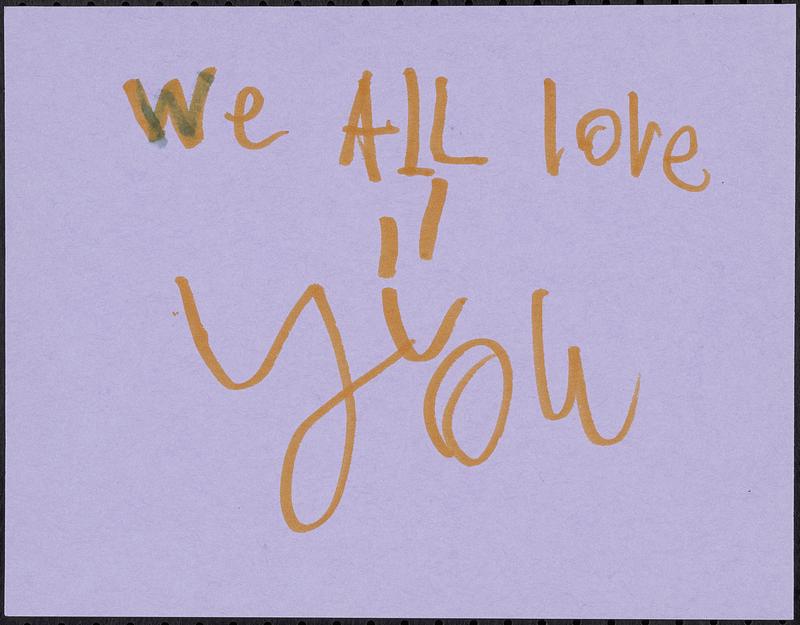 We ALL love
you